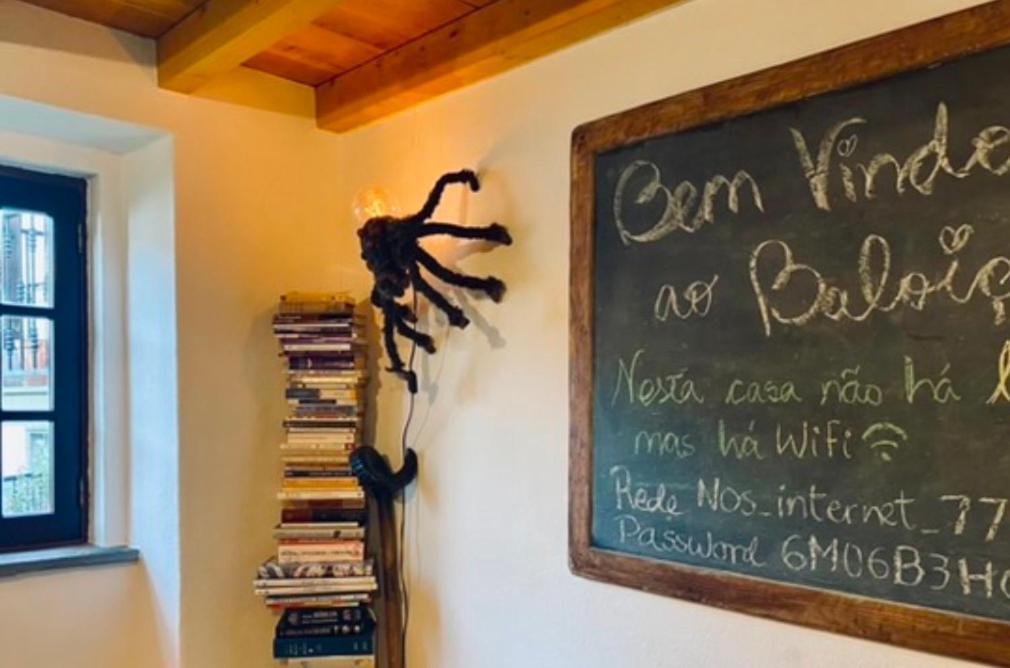 Bem Vindo
ao Baloiç
Nesta casa não há
mas há WiFi
Rede NOS_internet_77
Password 6M06B3H